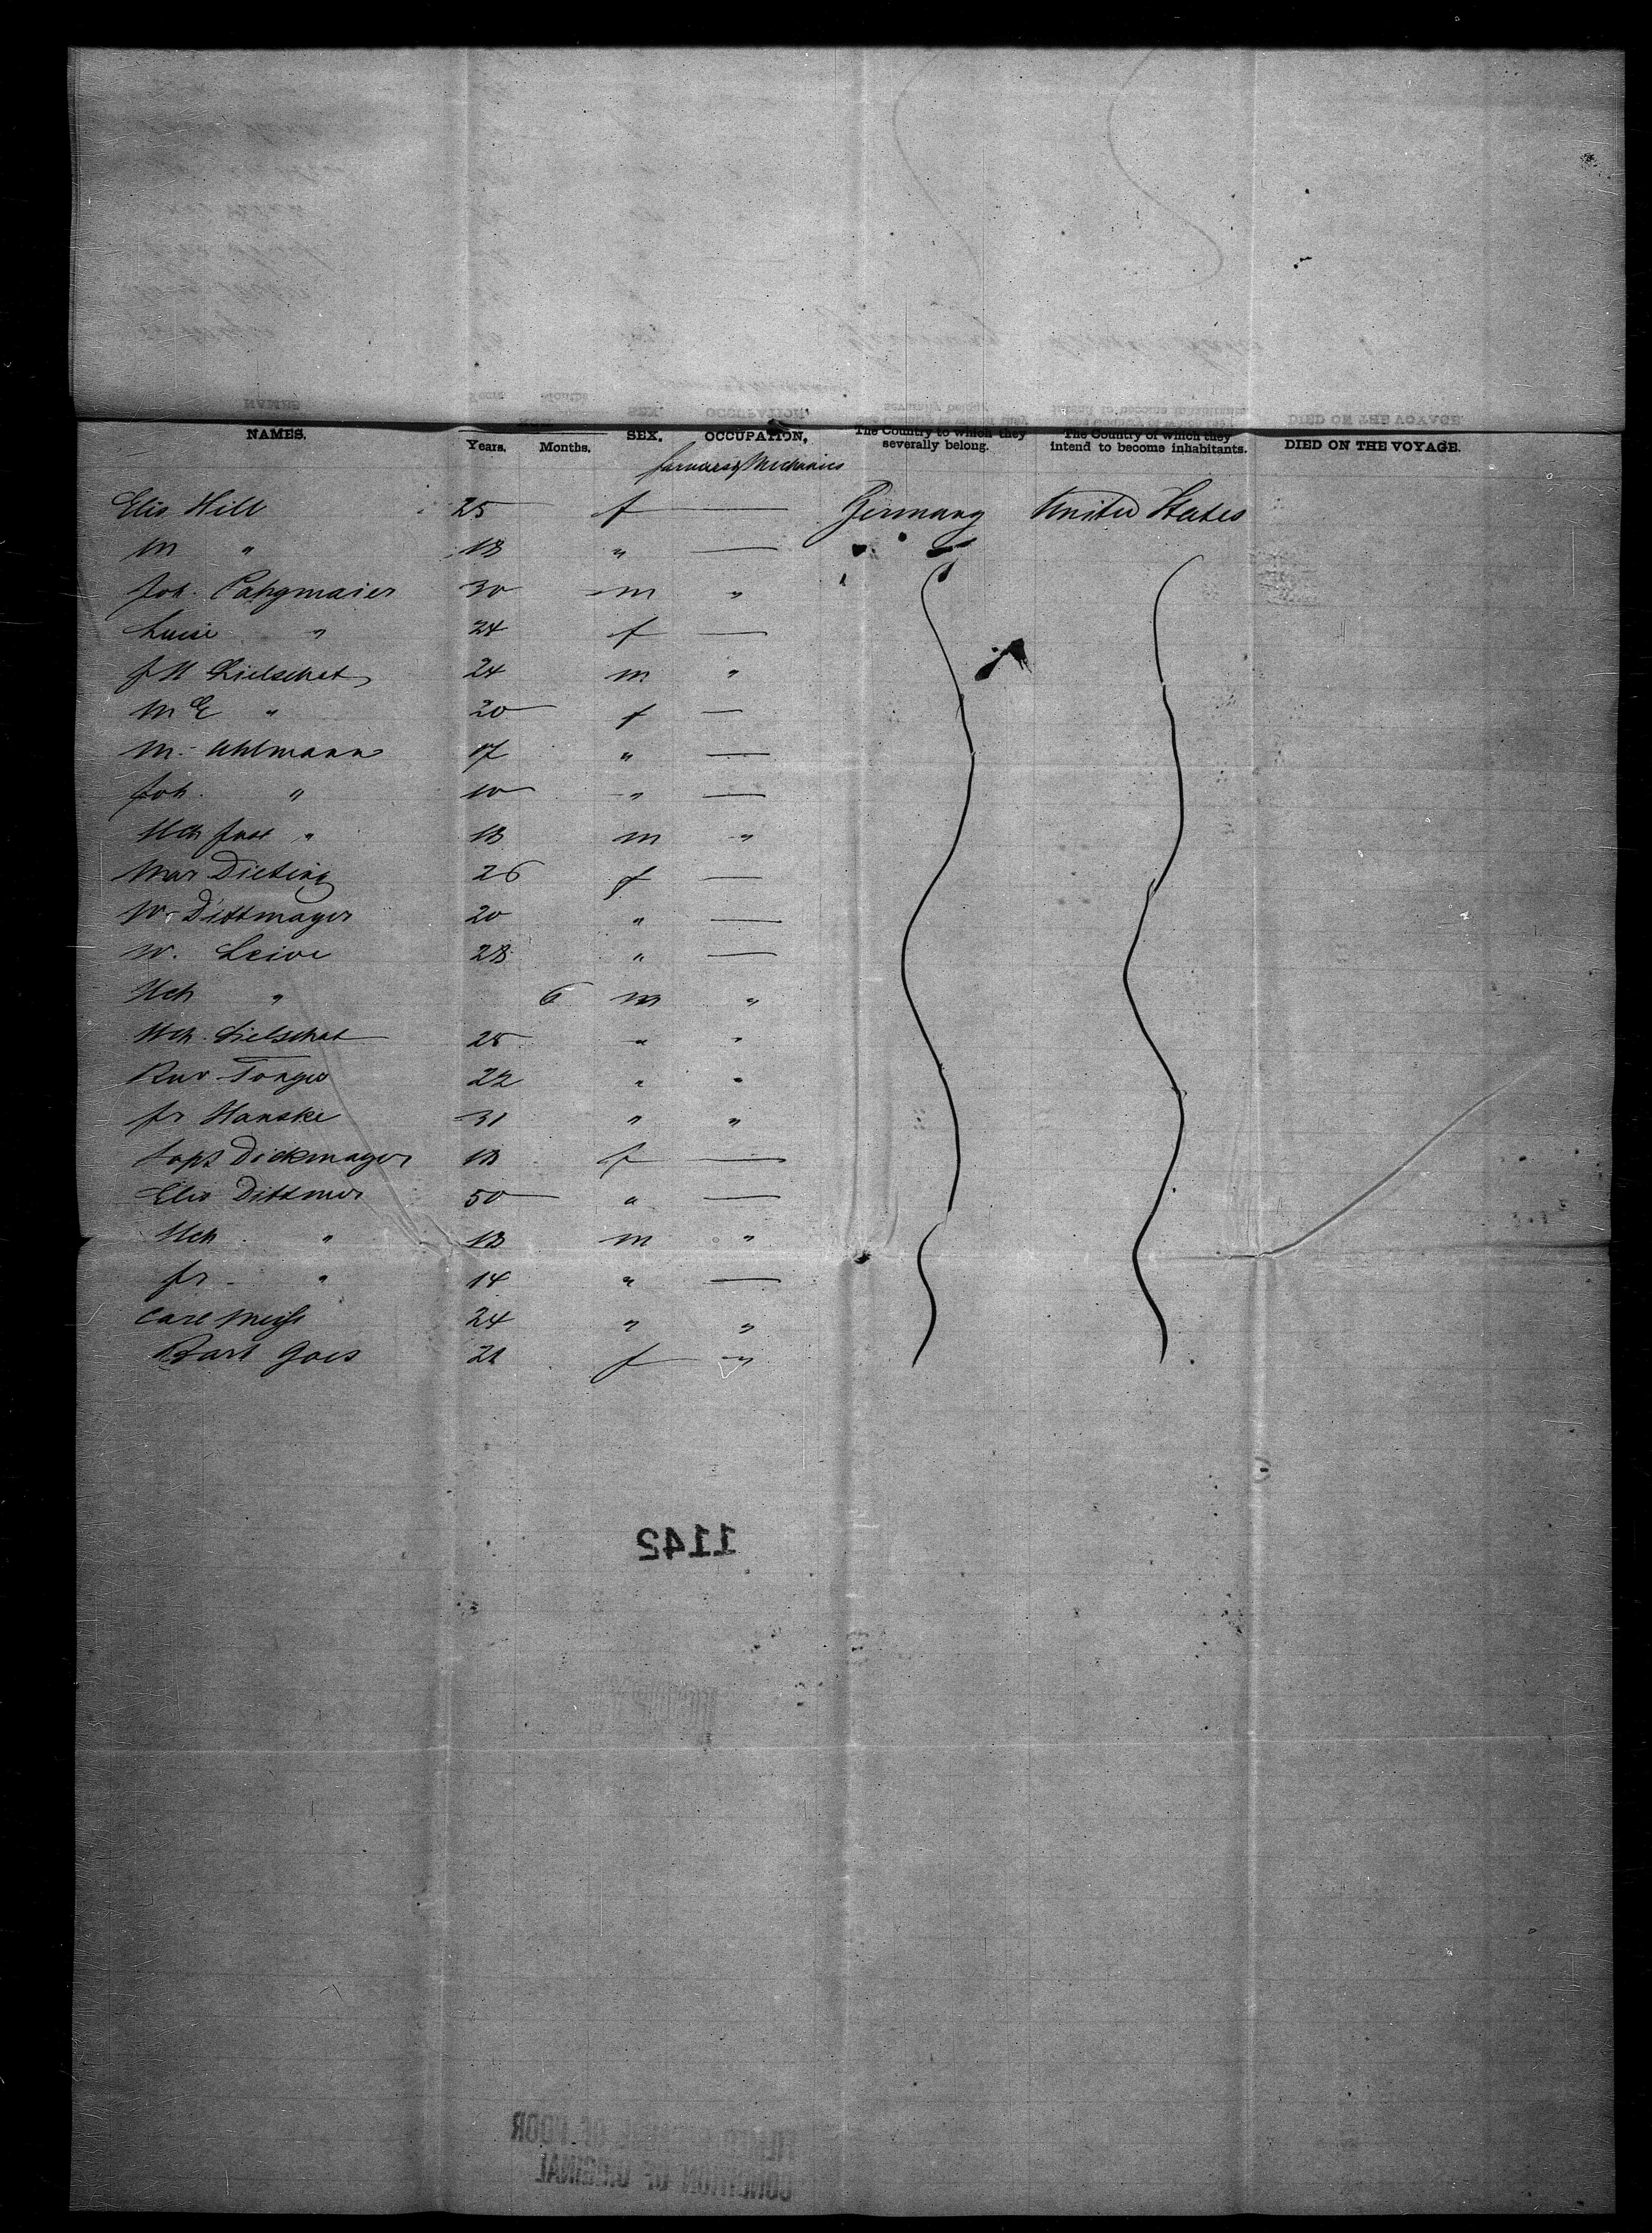 NAMES. Years. Months. SEX. OCCUPATION. The Country to which they severally belong. The Country of which they intend to become inhabitants. DIED ON THE VOYAGE.
farmers & Mechanics
Elis Hill 25 f — Germany United States
M " 18 " —
Joh. 30 m "
Luise " 24 f —
J H Lielschat 24 m "
M E " 20 f —
M. Uhlmann 17 " —
Joh. " 10 " —
Hch Just " 18 m "
Mar Dieting 26 f —
W. Dittmayer 20 " —
W. Leive 28 " —
Hch " 6 m "
Hch. Lielschat 25 " "
22 " "
Fr Hanske 31 " "
Soph Dickmayer 18 f —
Elis Dittmer 50 " —
Hch " 18 m "
Fr. " 14 " —
Carl 24 " "
Goes 21 f "
1142
FILMED BECAUSE OF POOR
CONDITION OF ORIGINAL